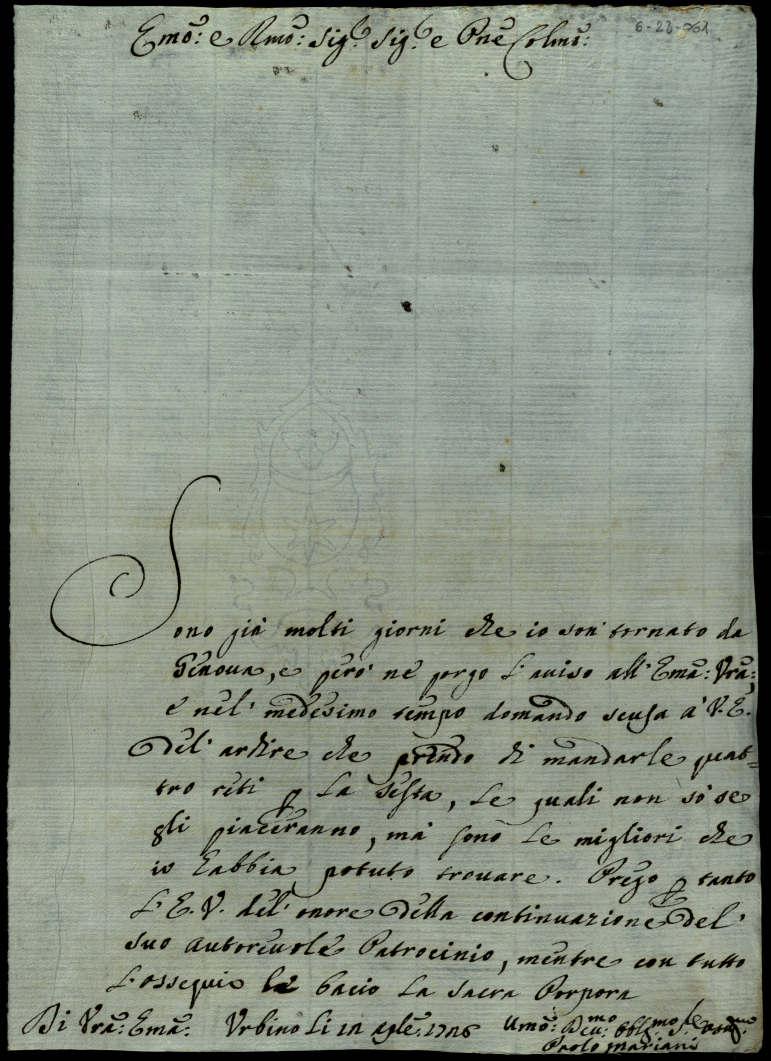 6-23-061
Emõ: e Rmõ: Sigʳ. Sigʳ. e Pñe Colmõ:
Sono già molti giorni che io son' tornato da
Genoua, e però ne porgo l'auiso all'Emã: Vrã:,
e nel' medesimo tempo domando scusa a' V. E.
del' ardire che prendo di mandarle quat=
tro reti p la testa, le quali non sò se
gli piaceranno, mà sono le migliori che
io habbia potuto trouare. Prego p tanto
l'E. V. del' onore della continuazione del'
suo autoreuole Patrocinio, mentre con tutto
l'ossequio le bacio la Sacra Porpora
Di Vrã: Emã: Vrbino li aglẽ: Umõ: Deuᵐᵒ Obblᵐᵒ
Paolo Mariani